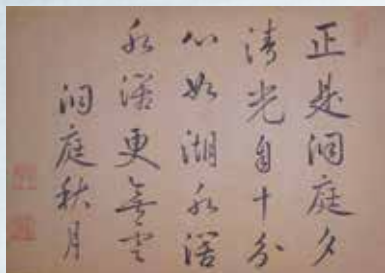 正是洞庭夕
清光自十分
心如湖水濶
水濶更無雲
洞庭秋月